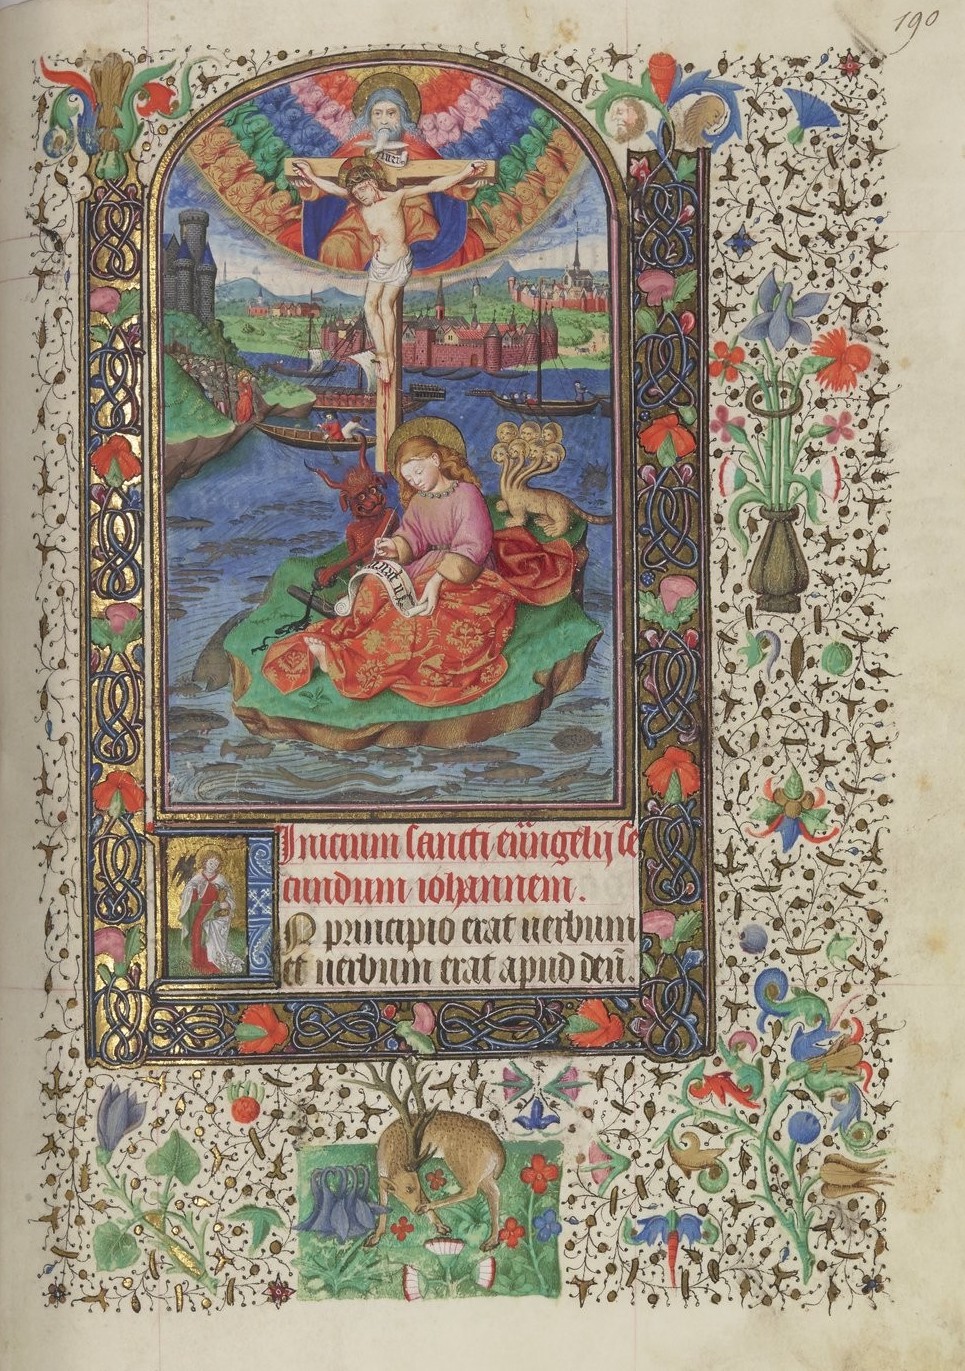 190
Initium sancti eu̅ngelij se
cundum iohannem.
N principio erat uerbum
et uerbum erat apud deu̅